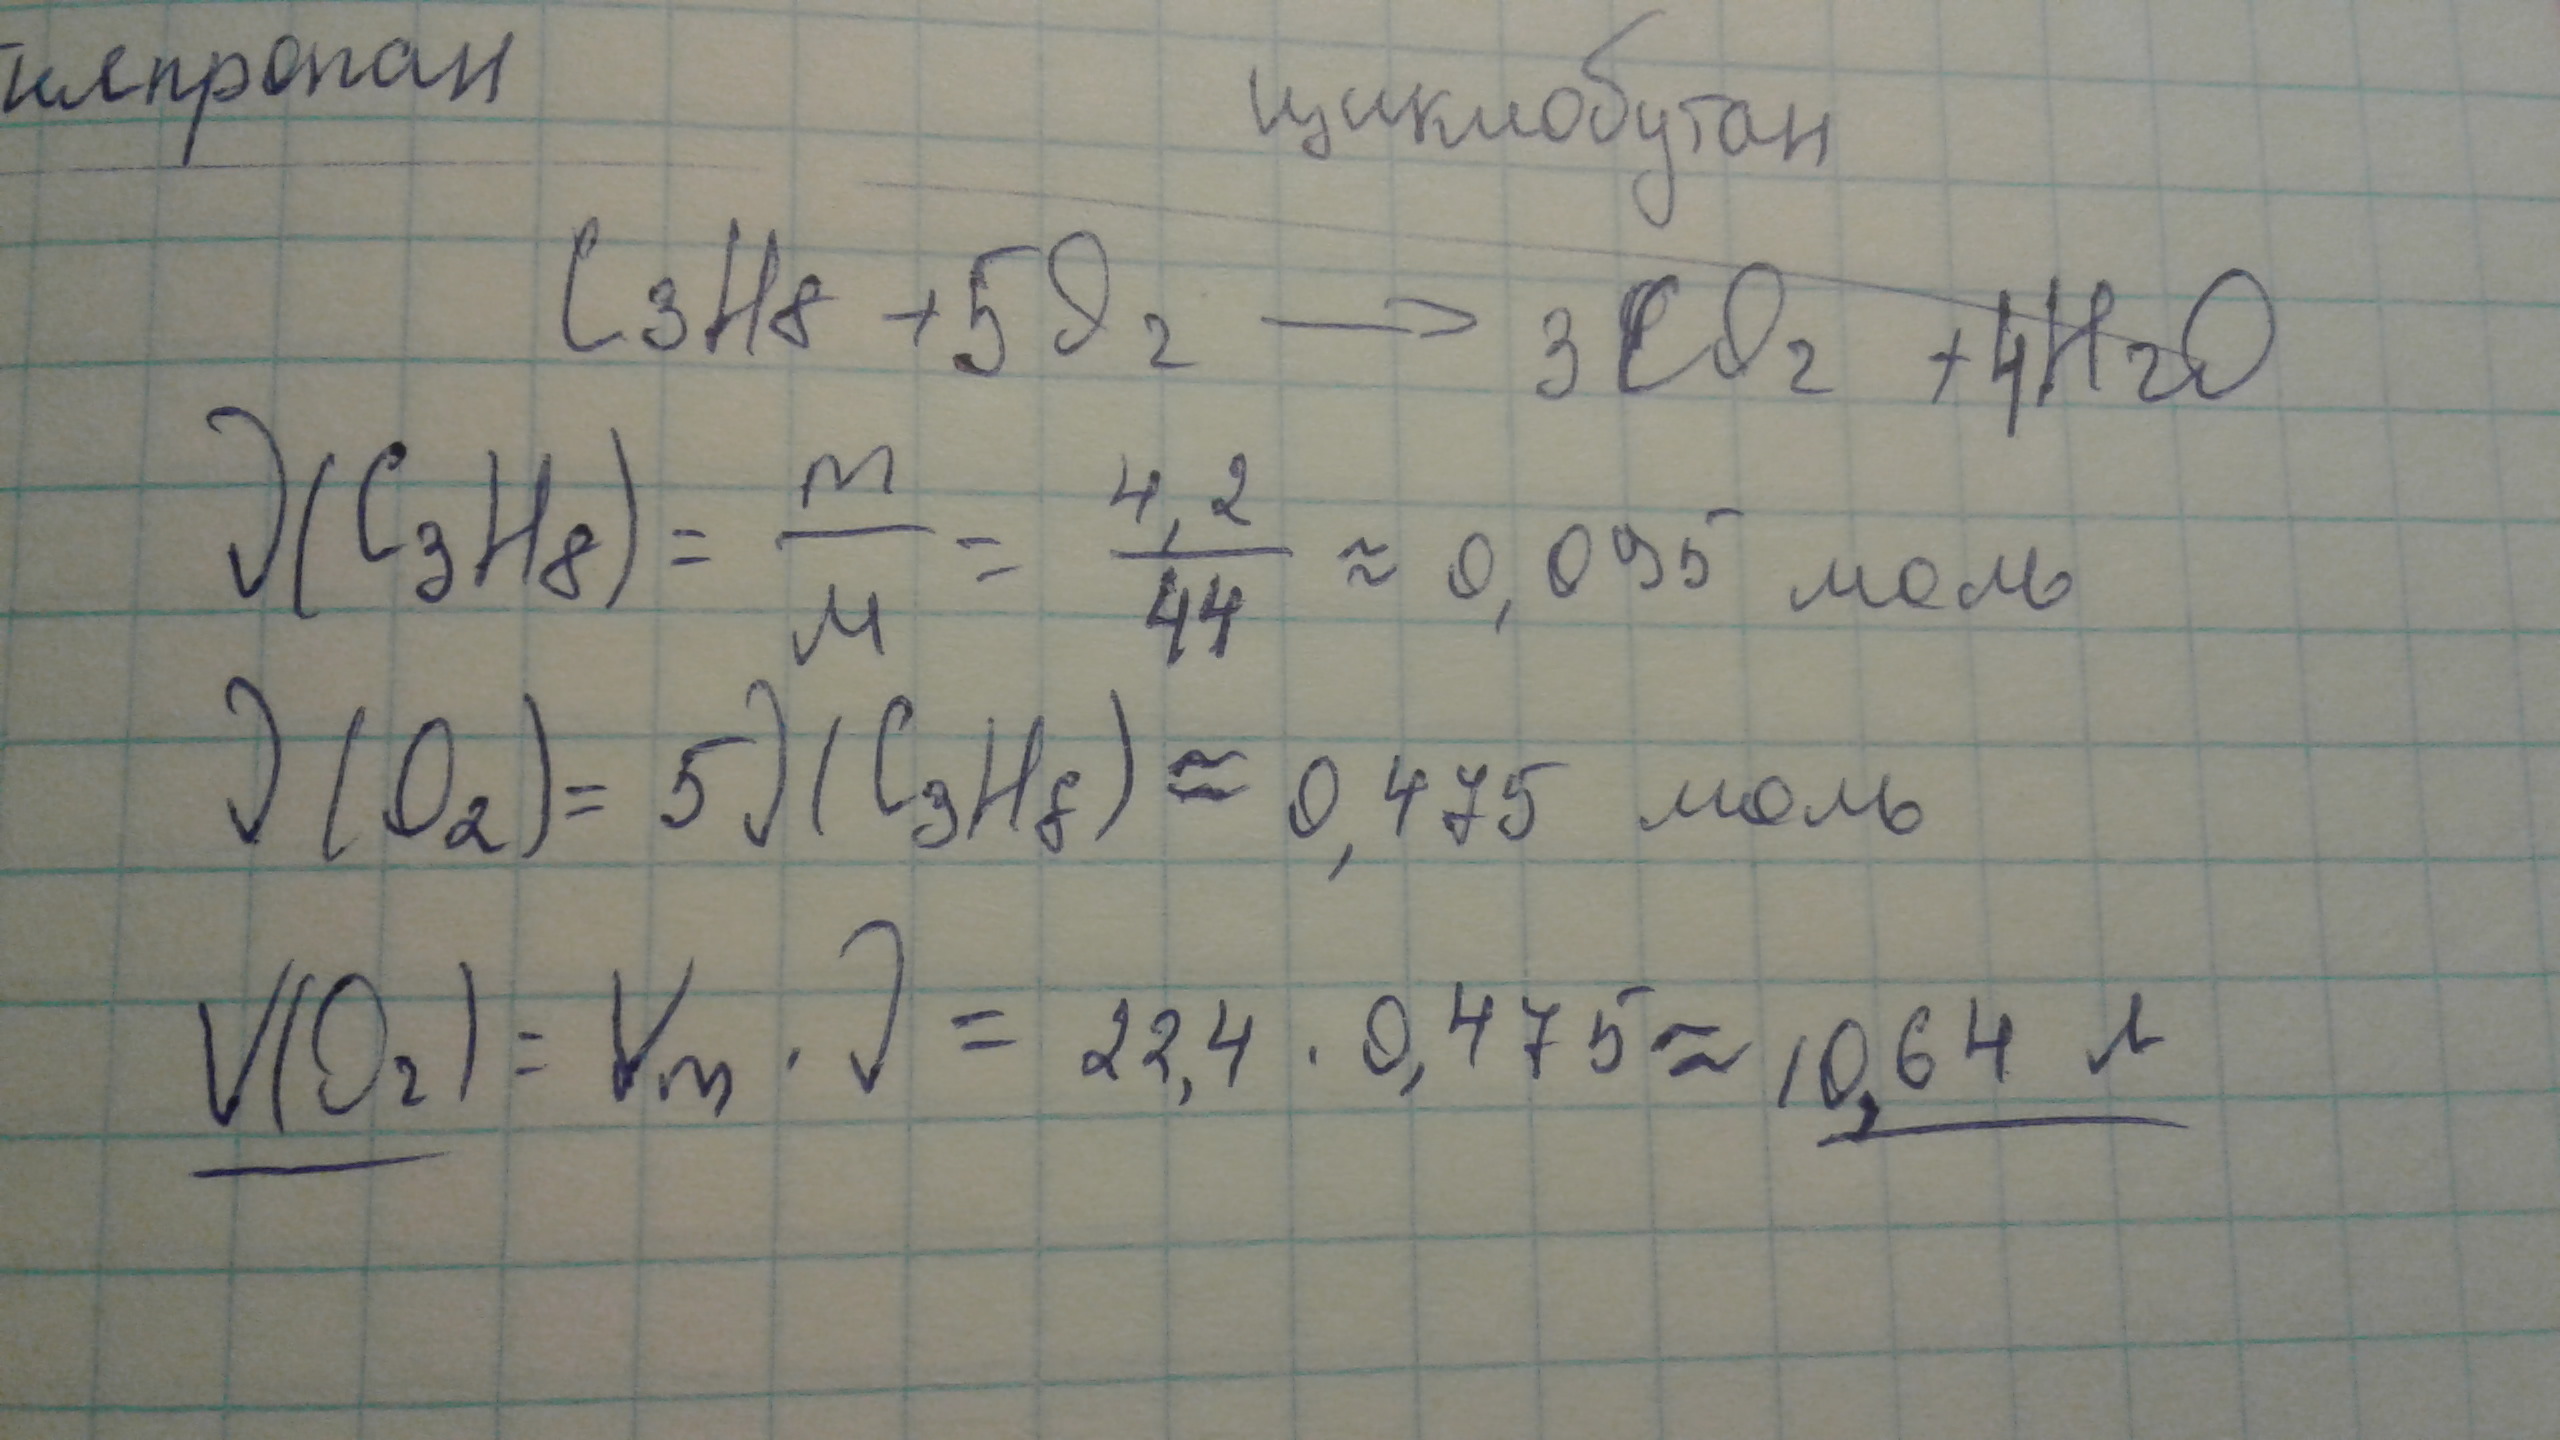 тилпропан циклобутан
C3H8 + 5O2 → 3CO2 + 4H2O
ν(C3H8) = m/M = 4,2/44 ≈ 0,095 моль
ν(O2) = 5ν(C3H8) ≈ 0,475 моль
V(O2) = Vm · ν = 22,4 · 0,475 ≈ 10,64 л